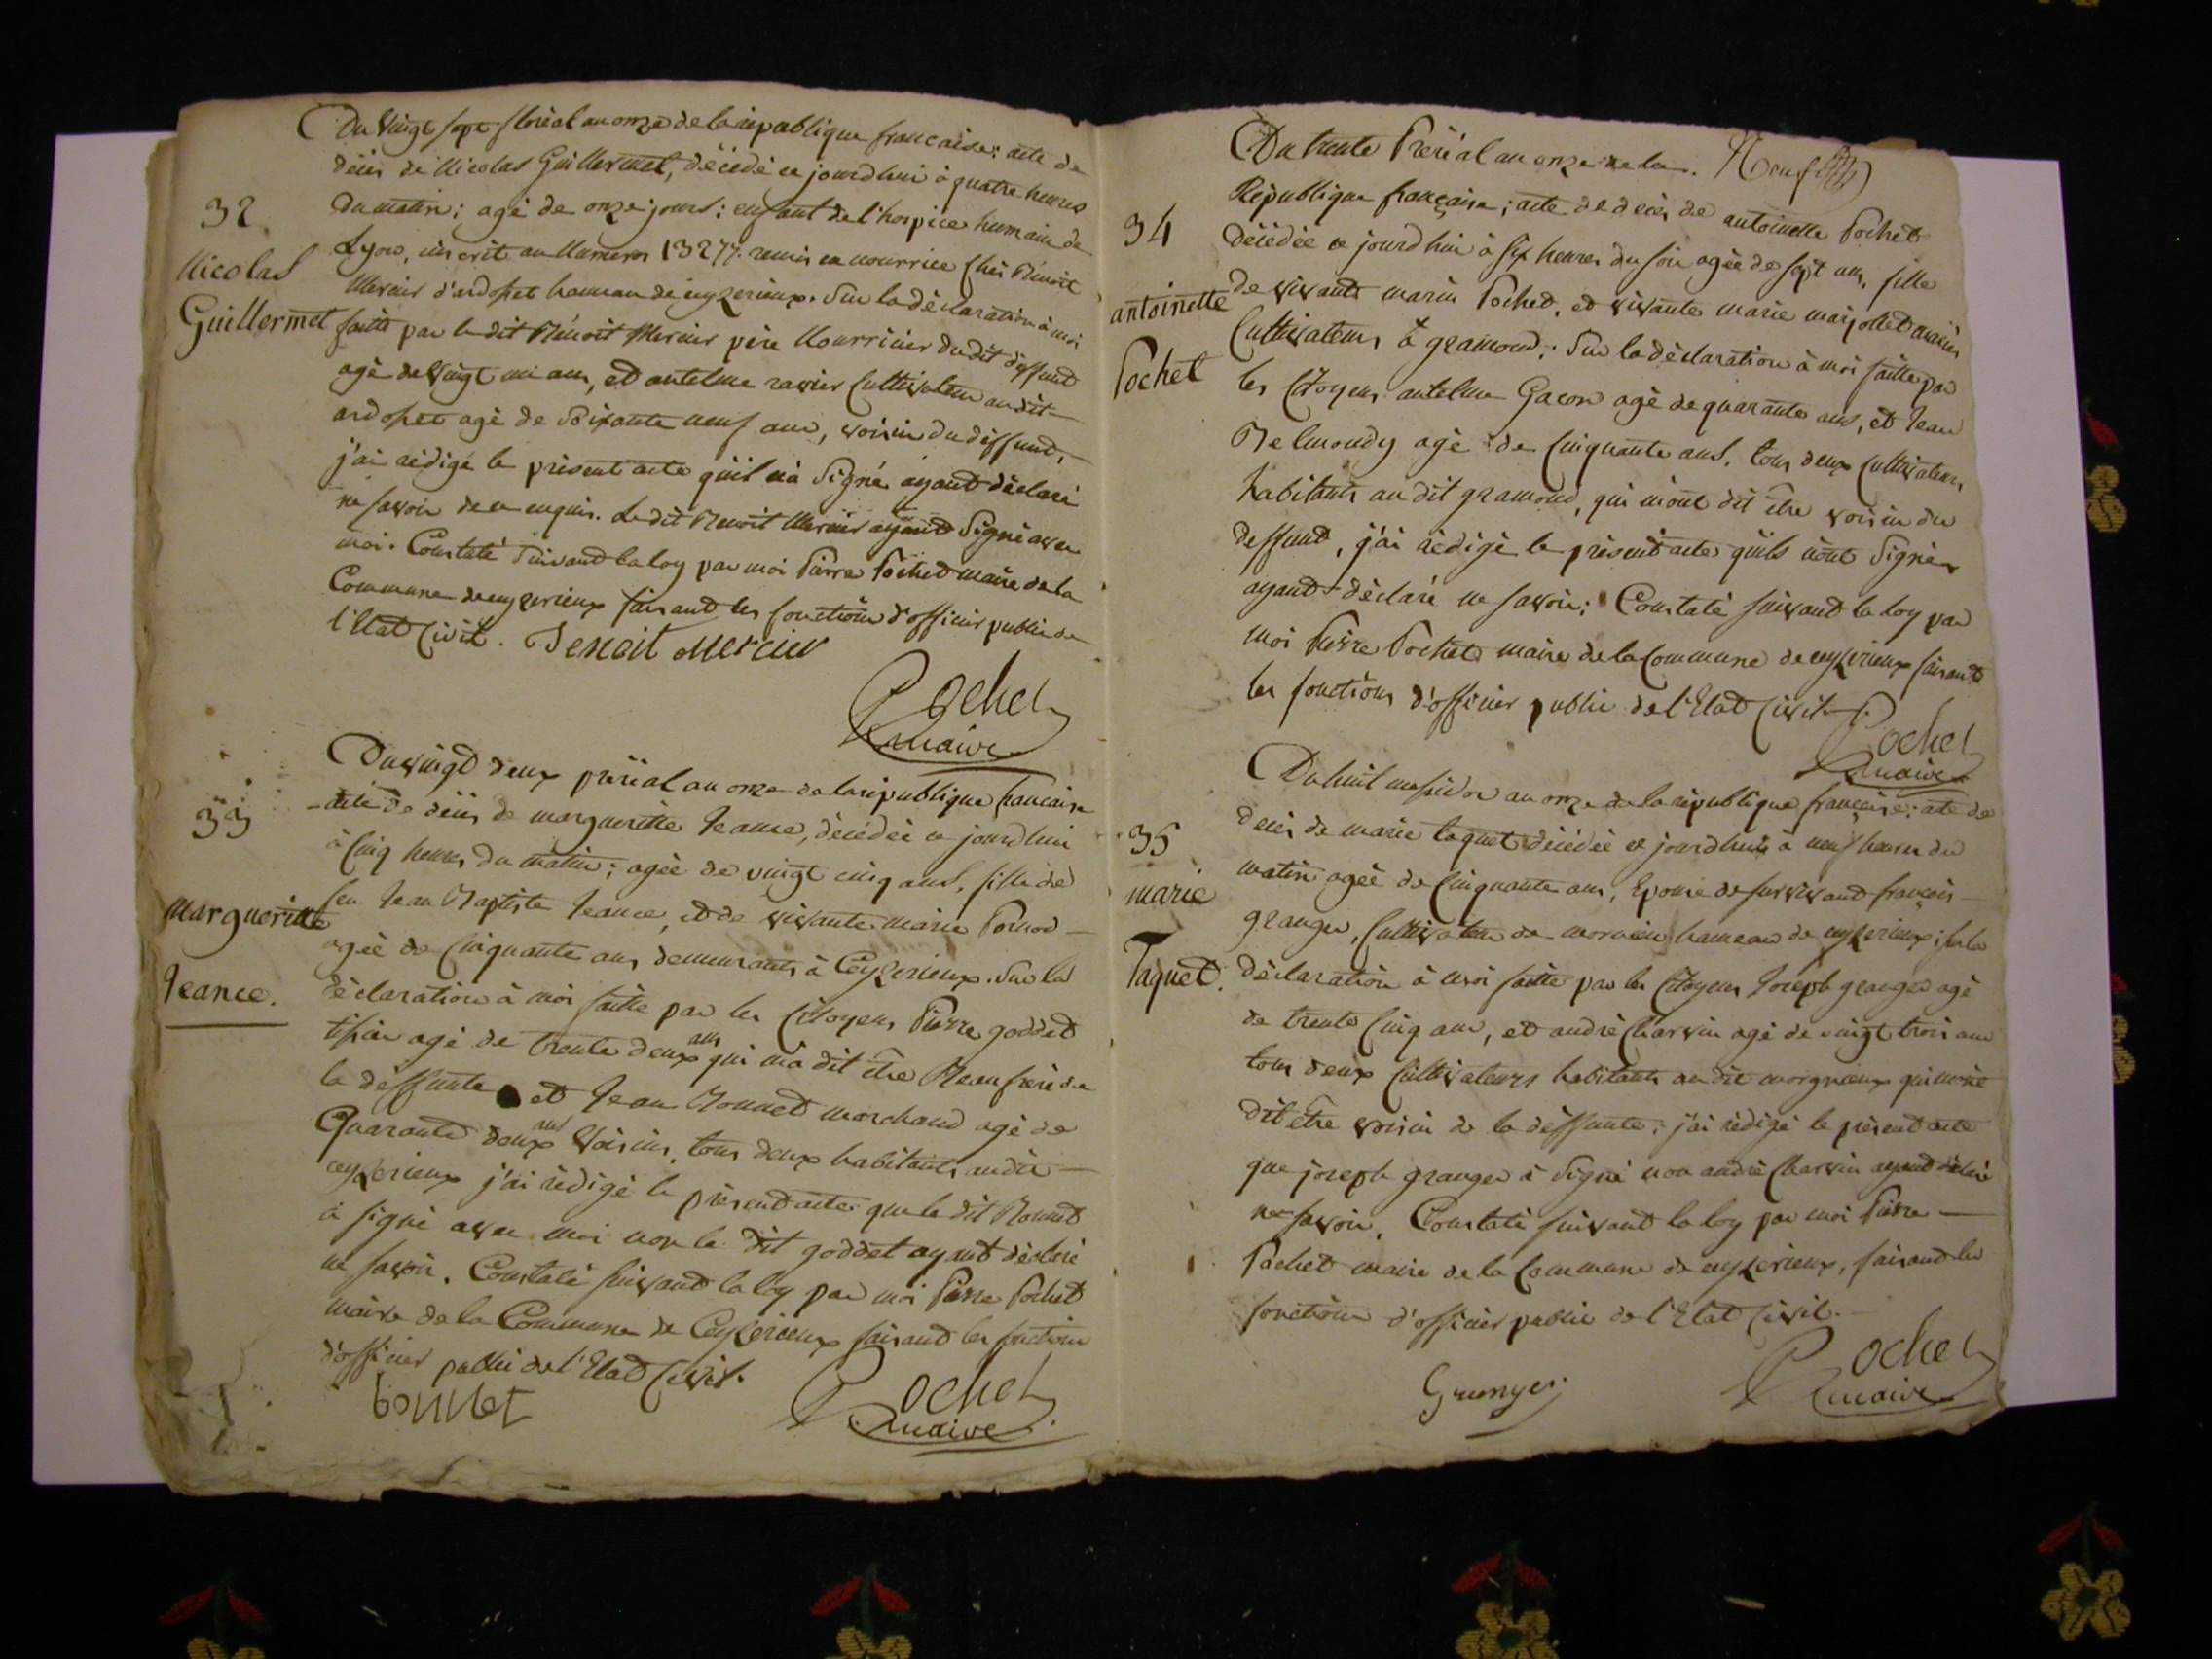 Du vingt sept floréal an onze de la république francaise: acte de
décès de Nicolas Guillermet, décédé ce jourd'hui à quatre heures
du matin; agé de onze jours; enfant de l'hospice humain de
32
Lyon, inscrit au Numéro 13277. remis en nourrice chés Benoit
Nicolas
Mercier d'ardosset hameau de ceyzerieux. Sur la déclaration à moi
Guillermet
faitte par le dit Benoit Mercier père Nourricier du dit deffunt
agé de vingt un ans, et antelme ravier Cultivateur au dit
ardosset agé de soixante neuf ans, voisin du deffunt,
j'ai rédigé le présent acte qu'il n'à Signé ayant déclaré
ne savoir de ce enquis. Le dit Benoit Mercier ayant Signé avec
moi. Constaté suivant la loy par moi Pierre Pochet maire de la
Commune de ceyzerieux faisant les fonctions d'officier public de
l'Etat Civil. Benoit Mercier
Pochet
maire
Du vingt deux preiial an onze de la république francaise
33
acte de décès de margueritte Jeance, décédée ce jourd'hui
à cinq heures du matin; agée de vingt cinq ans, fille de
margueritte
feu Jean Baptiste Jeance, et de vivante marie
agée de cinquante ans demeurants à Ceyzerieux. Sur la
Jeance.
déclaration à moi faitte par les Citoyens Pierre goddet
tissier agé de trente deux ans qui m'à dit être Beaufrere de
la deffunte et Jean Bonnet marchand agé de
Quarante deux ans Voisins, tous deux habitants audit
ceyzerieux j'ai rédigé le présent acte que le dit Bonnet
à signé avec moi non le dit goddet ayant déclaré
ne savoir. Constaté suivant la loy par moi Pierre Pochet
maire de la Commune de Ceyzerieux faisant les fonctions
d'officier public de l'Etat Civil.
bonnet
Pochet
maire
Du trente Preiial an onze de la. Neuf
République française; acte de decès de antoinette Pochet
34
décédée ce jourd'hui à six heures du soir agée de sept ans, fille
antoinette
de vivants marin Pochet, et vivante marie
Pochet
Cultivateurs à gramond; Sur la déclaration à moi faitte par
les Citoyens antelme Gacon agé de quarante ans, et Jean
Belmondy agé de cinquante ans, tous deux cultivateurs
habitants au dit gramond, qui m'ont dit être voisin du
deffunt, j'ai rédigé le présent acte qu'ils n'ont Signés
ayant déclaré ne savoir; Constaté suivant la loy par
moi Pierre Pochet maire de la Commune de ceyzerieux faisant
les fonctions d'officier public de l'Etat Civil.
Pochet
maire
Du huit messidor an onze de la république française; acte de
35
decès de marie taquet décédée ce jourd'hui à neuf heures du
marie
matin agée de cinquante ans, Epouse de survivant françois
granger, Cultivateur de hameau de ceyzerieux; sur la
Taquet.
déclaration à moi faitte par les Citoyens Joseph granger agé
de trente cinq ans, et andré Charvin agé de vingt trois ans
tous deux Cultivateurs habitants au dit qui m'ont
dit être voisin de la deffunte; j'ai rédigé le présent acte
que joseph granger à Signé non andré Charvin ayant déclaré
ne savoir. Constaté suivant la loy par moi Pierre
Pochet maire de la Commune de ceyzerieux, faisant les
fonctions d'officier public de l'Etat Civil.
Granger
Pochet
maire